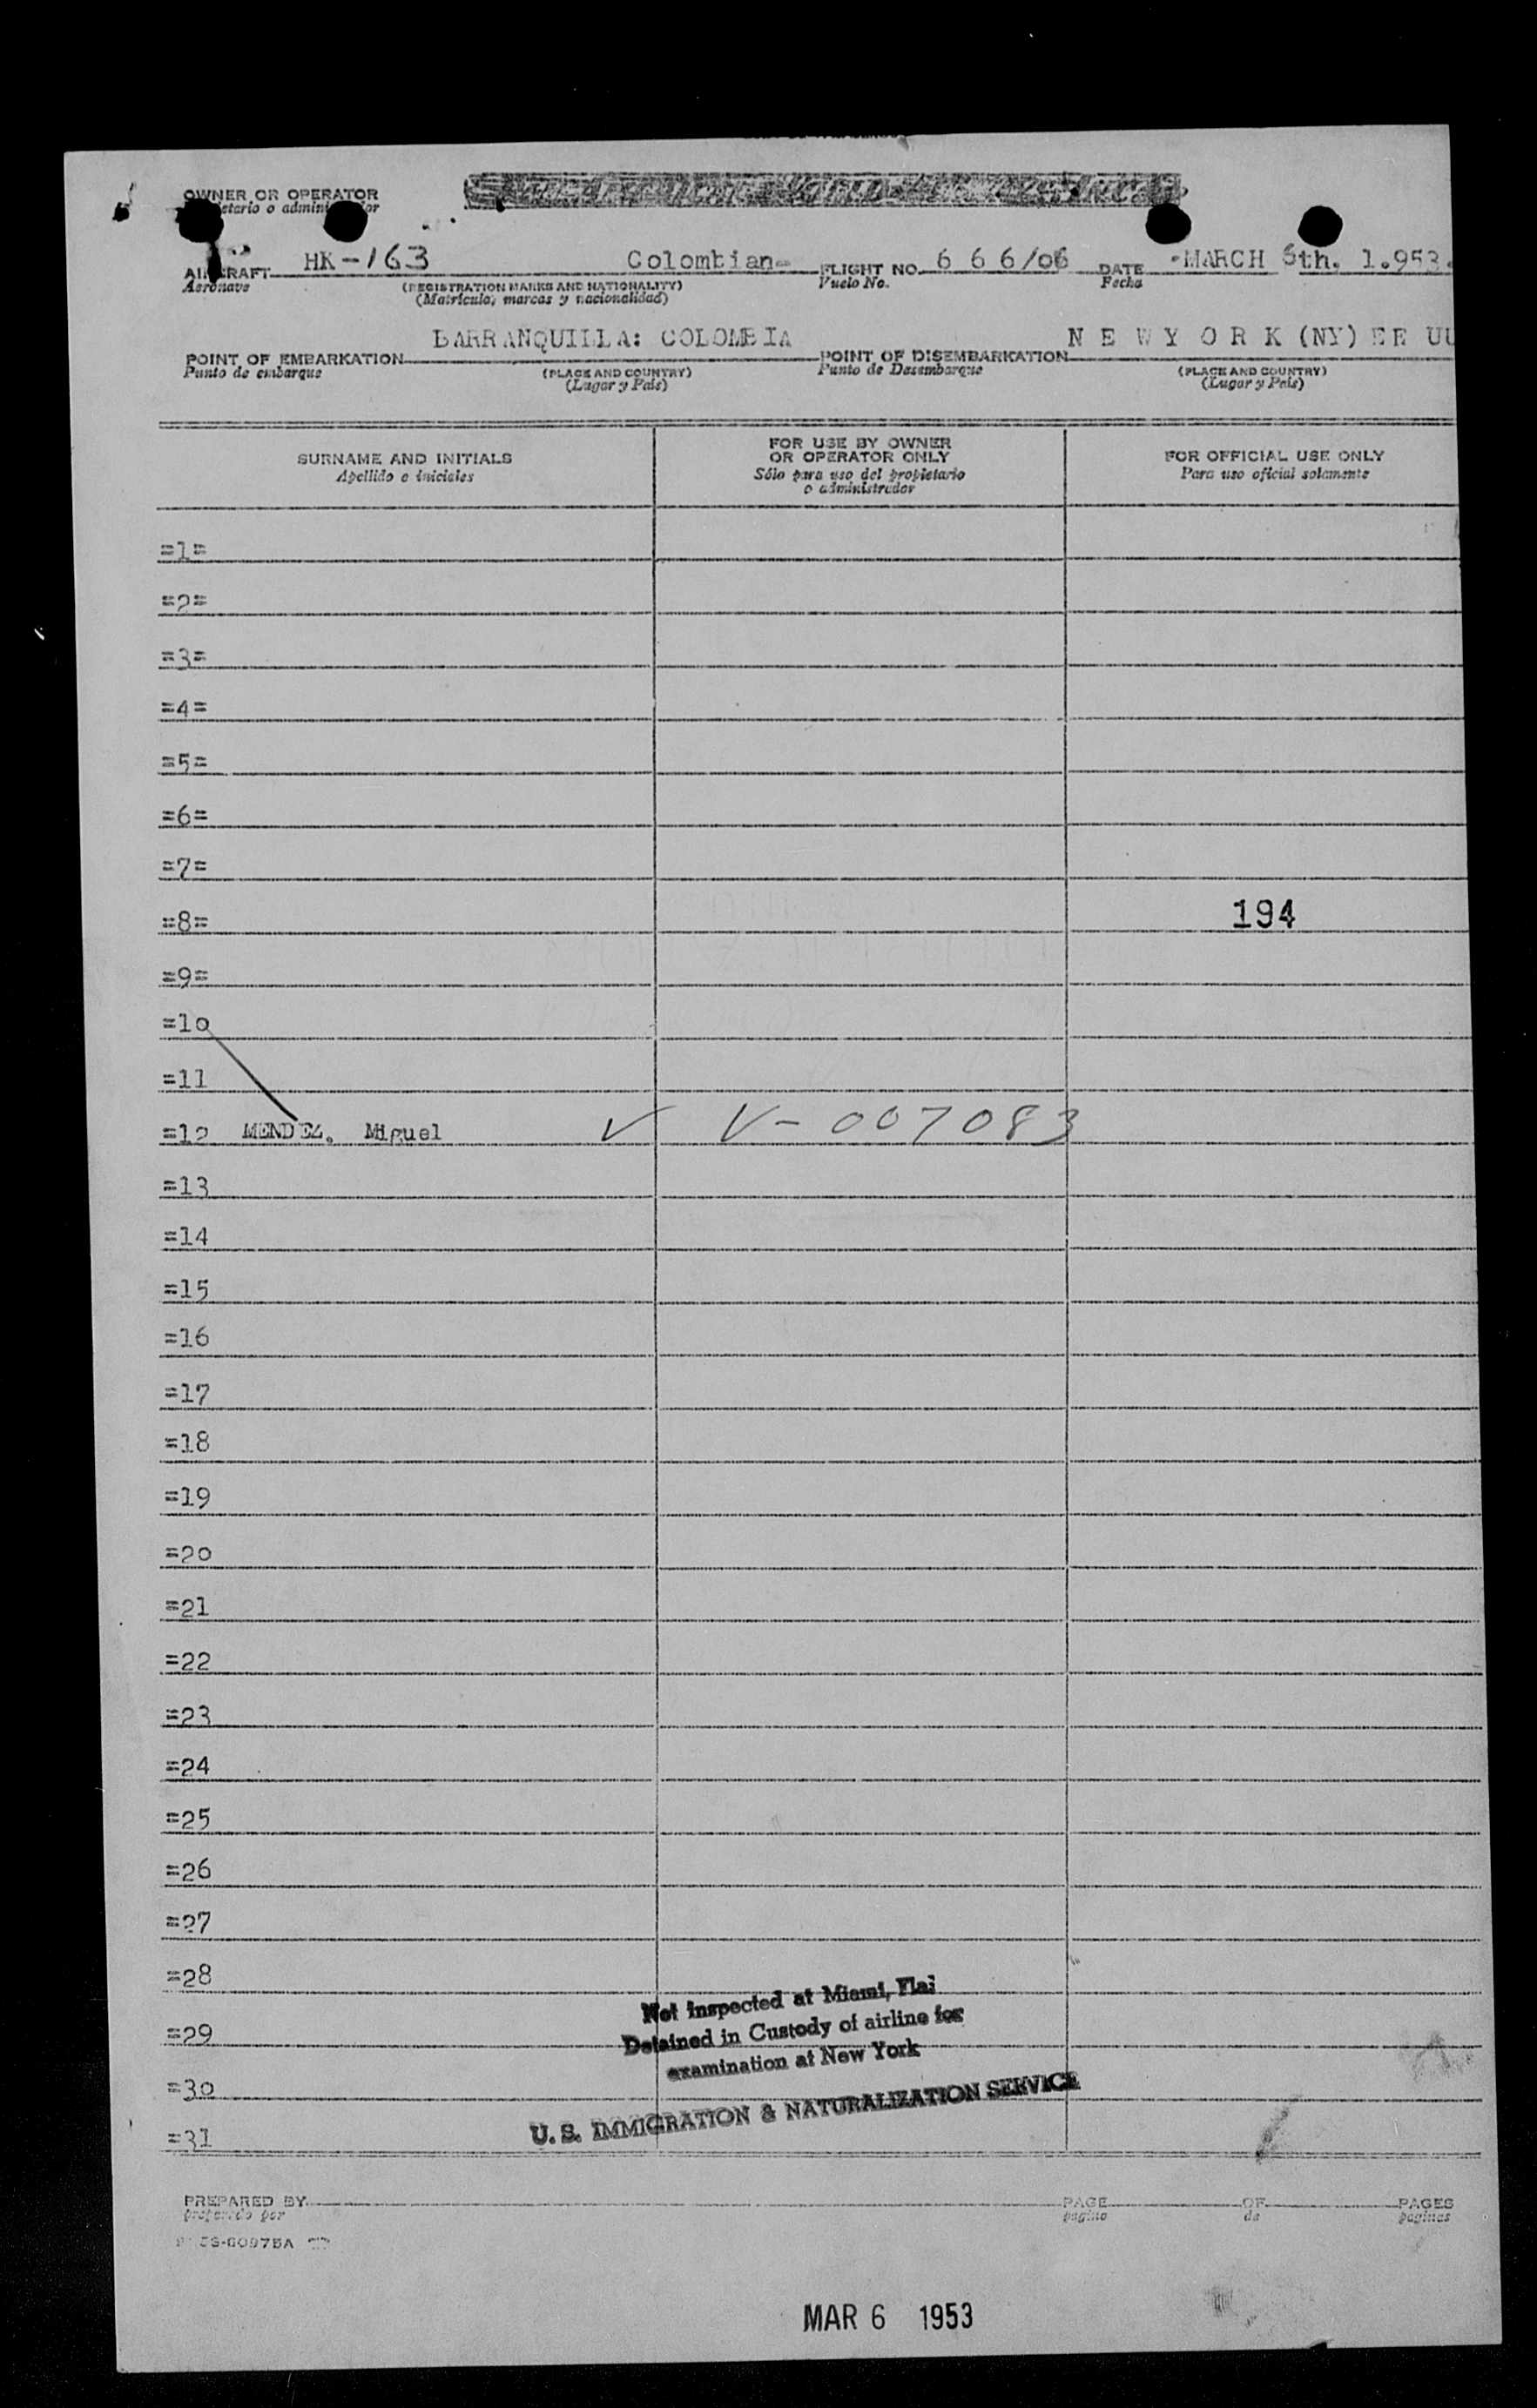 OWNER OR OPERATOR
HK-163 Colombian- 6 6 6/06 -MARCH 6th. 1.953.
AIRCRAFT FLIGHT NO. DATE
Aeronave (REGISTRATION MARKS AND NATIONALITY) Vuelo No. Fecha
(Matrícula, marcas y nacionalidad)
BARRANQUILLA: COLOMBIA N E W Y O R K (NY) EE UU
POINT OF EMBARKATION POINT OF DISEMBARKATION
Punto de embarque (PLACE AND COUNTRY) Punto de Desembarque (PLACE AND COUNTRY)
(Lugar y País) (Lugar y País)
SURNAME AND INITIALS
Apellido e iniciales
FOR USE BY OWNER
OR OPERATOR ONLY
Sólo para uso del propietario
o administrador
FOR OFFICIAL USE ONLY
Para uso oficial solamente
=1=
=2=
=3=
=4=
=5=
=6=
=7=
=8= 194
=9=
=10
=11
=12 MENDEZ, Miguel V-007083
=13
=14
=15
=16
=17
=18
=19
=20
=21
=22
=23
=24
=25
=26
=27
=28
=29
=30
=31
Not Inspected at Miami, Fla.
Detained in Custody of airline for
examination at New York
U. S. IMMIGRATION & NATURALIZATION SERVICE
PREPARED BY PAGE OF PAGES
preparado por pagina de paginas
MAR 6 1953